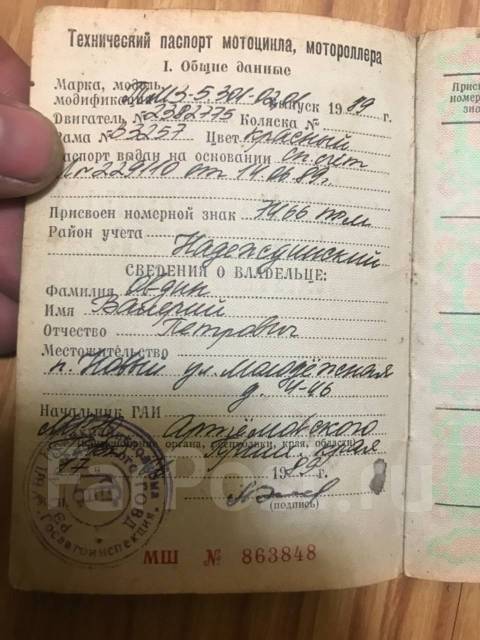 Технический паспорт мотоцикла, мотороллера
I. Общие данные
Марка, модель,
модификация ММВЗ-5 301-0201 Выпуск 1989 г.
Двигатель № 2382775 Коляска №
Рама № 53257 Цвет красный
Паспорт выдан на основании сп. счет
№ 229110 от 14.06.89г.
Присвоен номерной знак 1966
Район учета Надеждинский
СВЕДЕНИЯ О ВЛАДЕЛЬЦЕ:
Фамилия Овдин
Имя Валерий
Отчество Петрович
Местожительство
п. Новый ул. Молодёжная
д. 4-46
Начальник ГАИ
Артёмовского
(наименование органа, республики, края, области)
Прим. края
17 1989 г.
(подпись)
Госавтоинспекция
МШ № 863848
Присв
номерн
зна
FarPost.ru